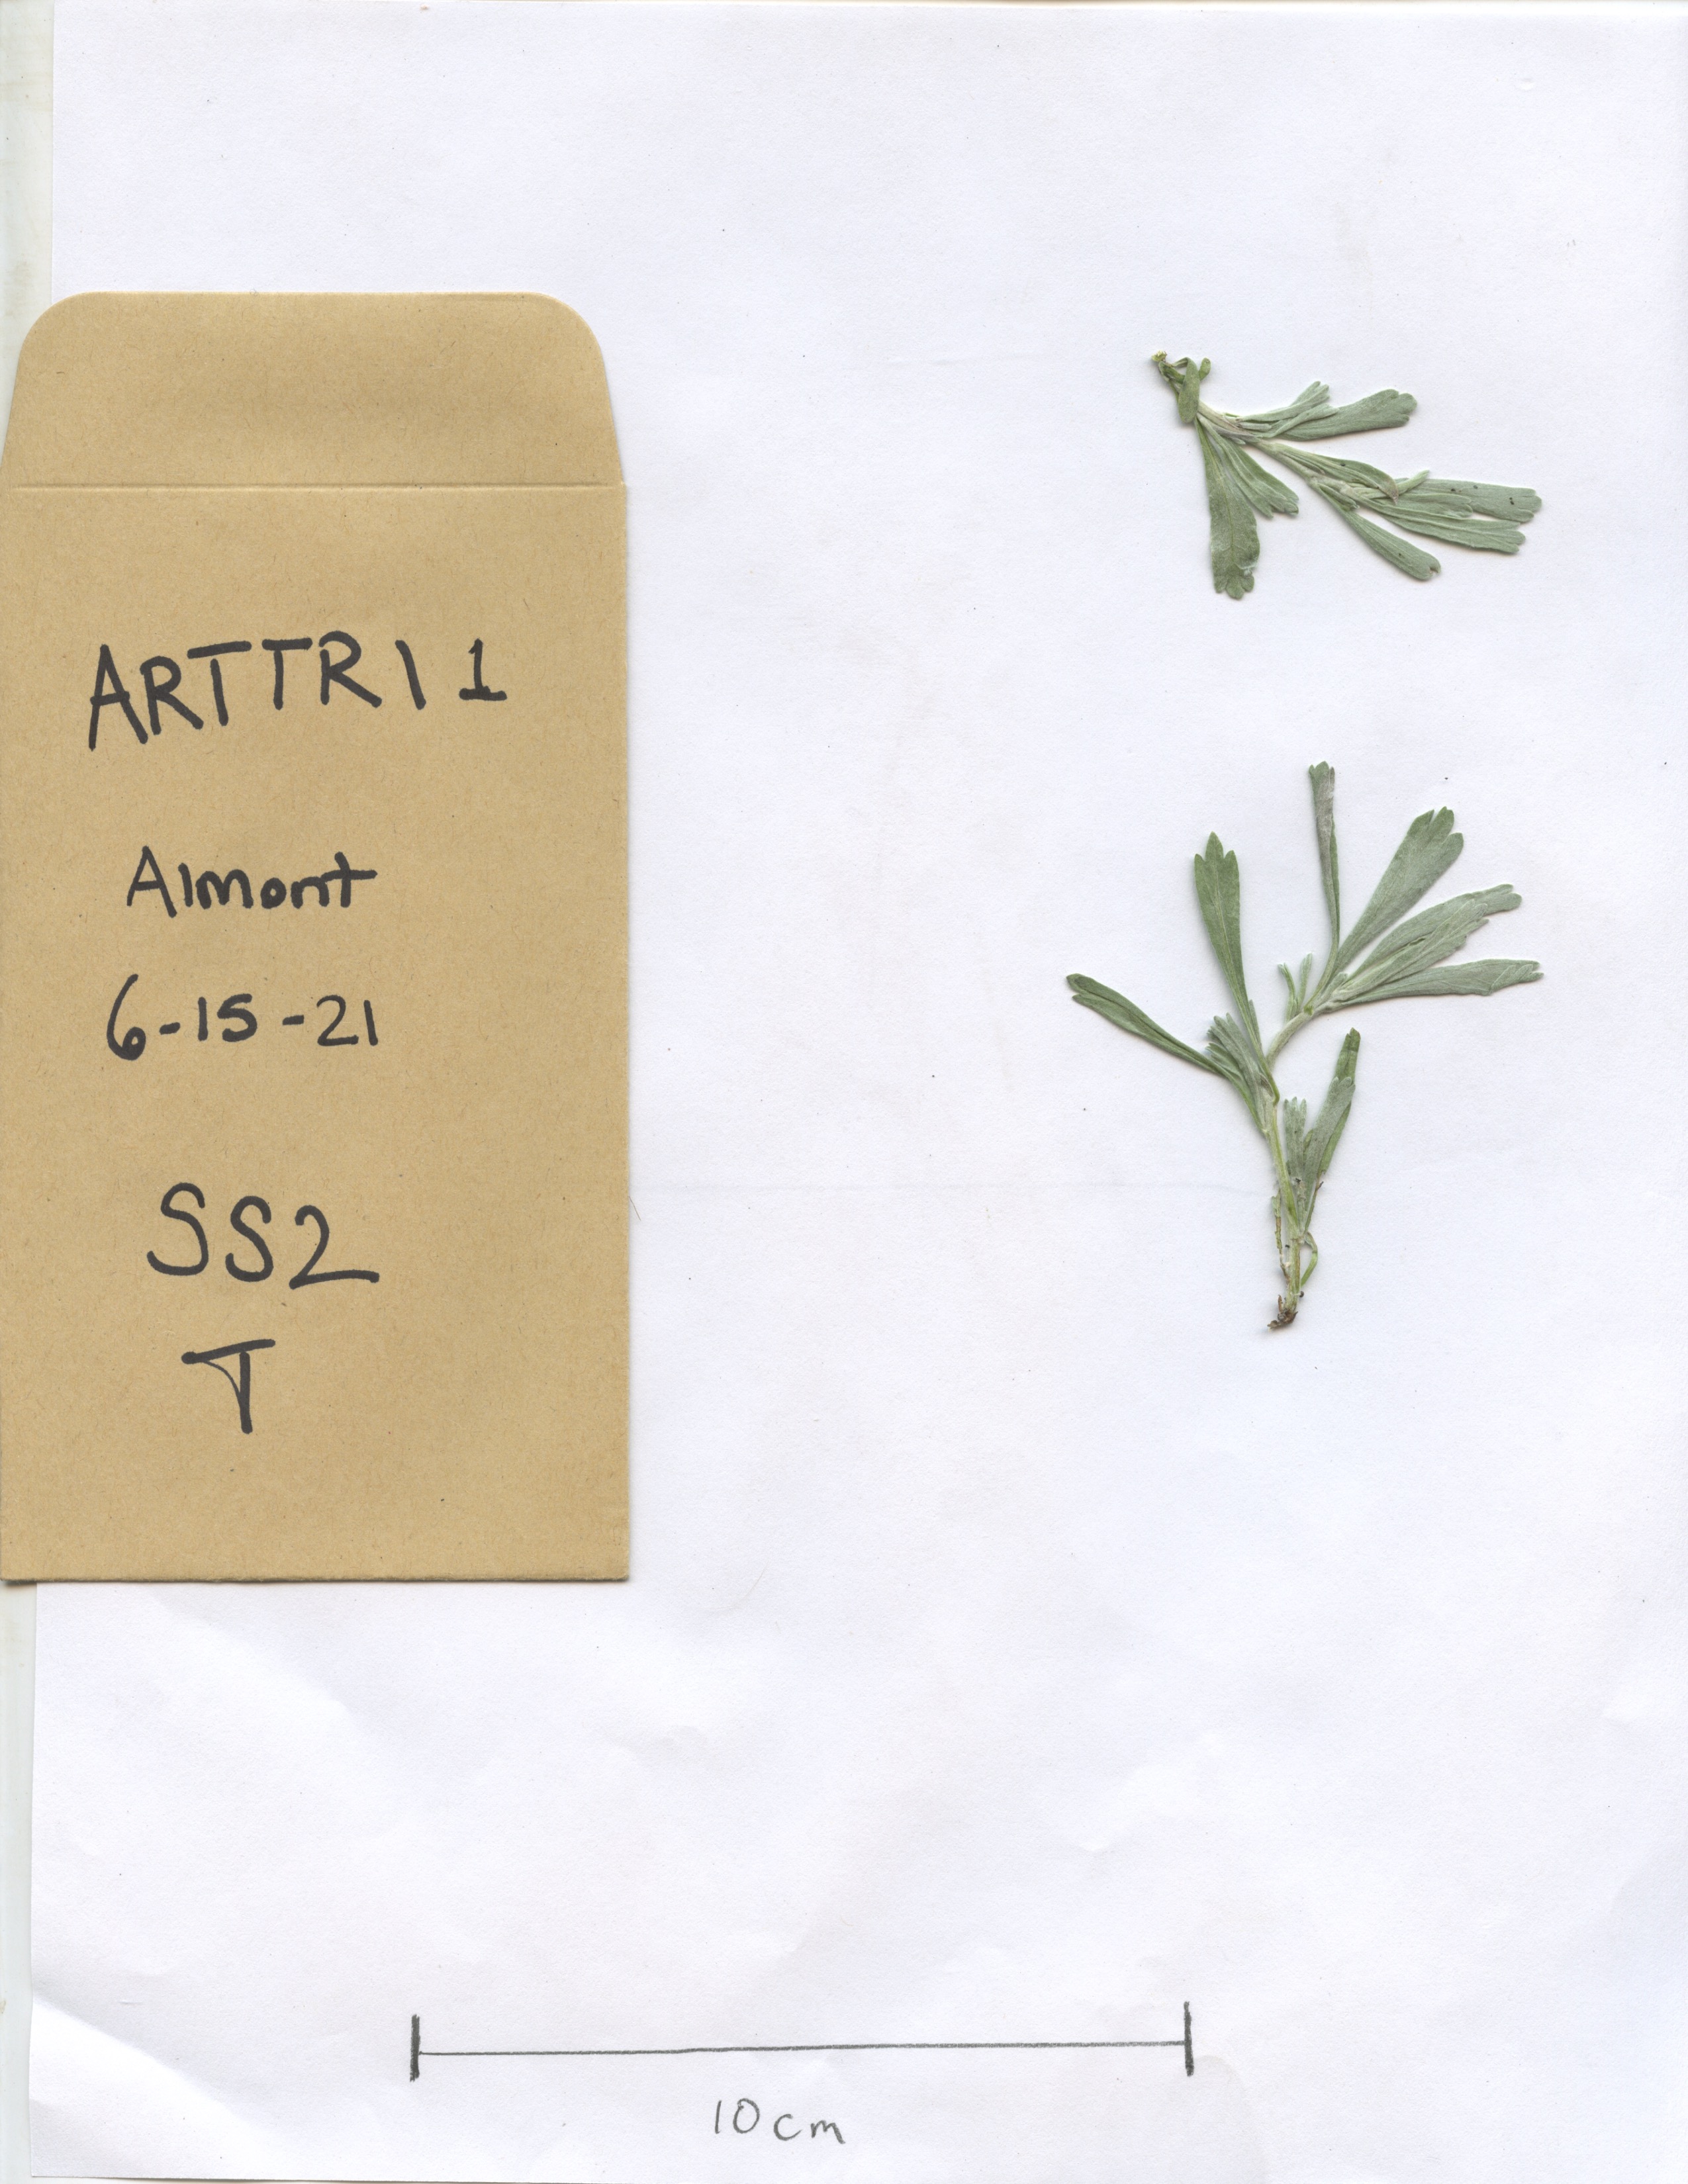 ARTTRI 1
Almont
6-15-21
SS2
T
10cm